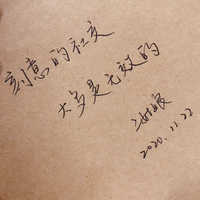 刻意的社交
大多是无效的
2020.11.22